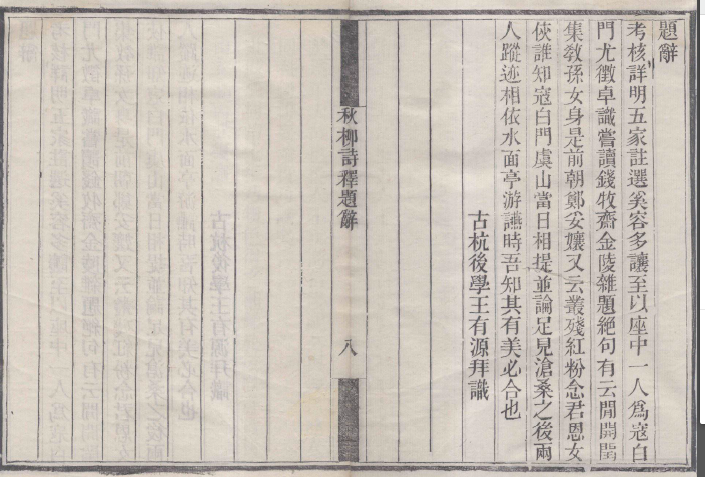 題辭
考核詳明五家註選奚容多讓至以座中一人爲寇白
門尤徵卓識嘗讀錢牧齋金陵雜題絕句有云閒開閏
集教孫女身是前朝鄭妥孃又云叢殘紅粉念君恩女
俠誰知寇白門虞山當日相提並論足見滄桑之後兩
人蹤迹相依水面亭游讌時吾知其有美必合也
古杭後學王有源拜識
秋柳詩釋題辭
八